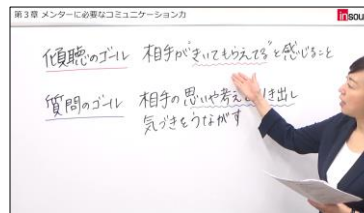 第3章 メンターに必要なコミュニケーション力
insou
傾聴のゴール 相手が"きいてもらえてる"と感じること
質問のゴール 相手の思いや考えを引き出し
気づきをうながす